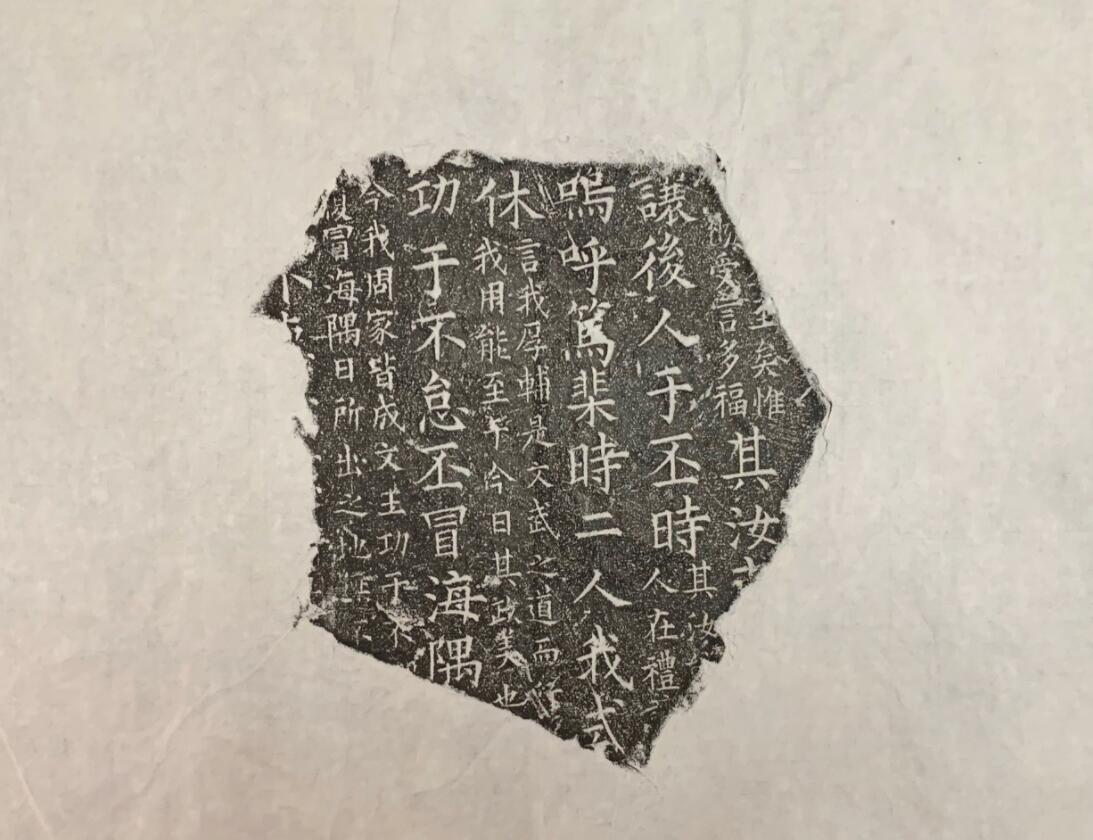 至矣惟
受言多福
其汝
讓後人于丕時
其汝
人在禮
嗚呼篤棐時二人我式
休
言我厚輔是文武之道而行
我用能至于今日其政美也
功于不怠丕冒海隅
今我周家皆成文王功于不
覆冒海隅日所出之地